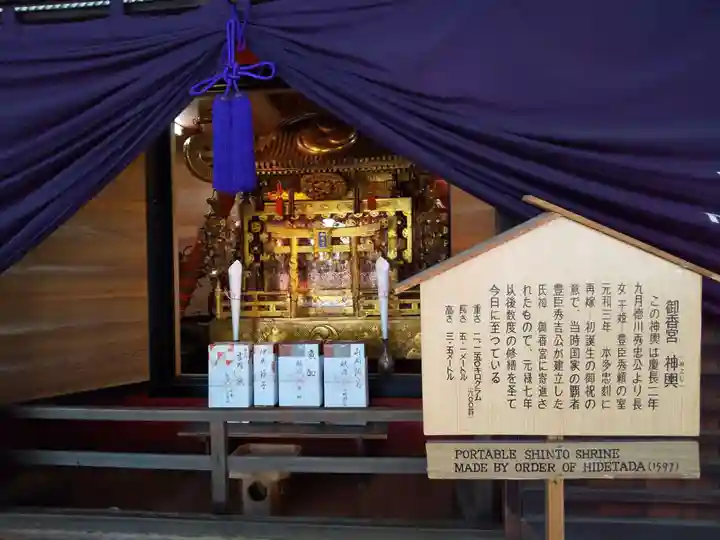 御香宮 神輿
この神輿は慶長二年
九月徳川秀忠公より長
女千姫(豊臣秀頼の室
元和三年 本多忠刻に
再嫁)初誕生の御祝の
意で、当時国家の覇者
豊臣秀吉公が建立した
氏神 御香宮に寄進さ
れたもので、元禄七年
以後数度の修繕を至て
今日に至つている
重さ 二二五〇キログラム(六〇〇貫)
長さ 五・一メートル
高さ 三・五メートル
PORTABLE SHINTO SHRINE
MADE BY ORDER OF HIDETADA (1597)